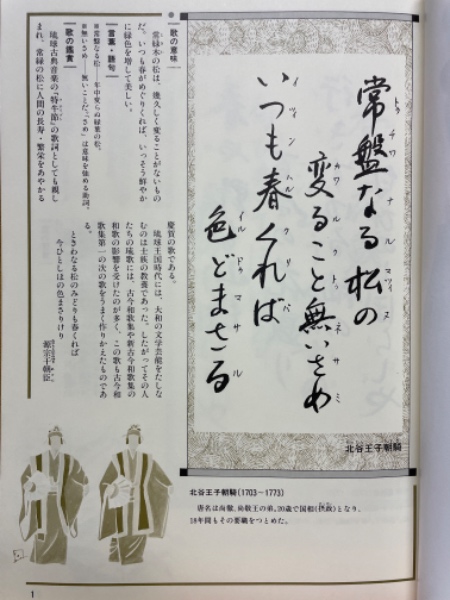 常盤なる松の
トゥチワ ナル マツィヌ
変ること無いさめ
カワル クトゥ ネサミ
いつも春くれば
イツィン ハル クリバ
色どまさる
イルドゥ マサル
北谷王子朝騎
北谷王子朝騎(1703〜1773)
唐名は尚徹、尚敬王の弟。20歳で国相(摂政)となり、
18年間もその要職をつとめた。
歌の意味
常緑木の松は、幾久しく変ることがないもの
だ。いつも春がめぐりくれば、いっそう鮮やか
に緑色を増して美しい。
言葉・語句
※常盤なる松――年中変らぬ緑葉の松。
※無いさめ――無いことだ。「さめ」は意味を強める助詞。
歌の鑑賞
琉球古典音楽の「特牛節」の歌詞としても親し
まれ、常緑の松に人間の長寿・繁栄をあやかる
慶賀の歌である。
琉球王国時代には、大和の文学芸能をたしな
むのは士族の教養であった。したがってその人
たちの琉歌には、古今和歌集や新古今和歌集の
和歌の影響を受けたのが多く、この歌も古今和
歌集第一の次の歌をうまく作りかえたものであ
る。
ときわなる松のみどりも春くれば
今ひとしほの色まさりけり
源宗于朝臣
1